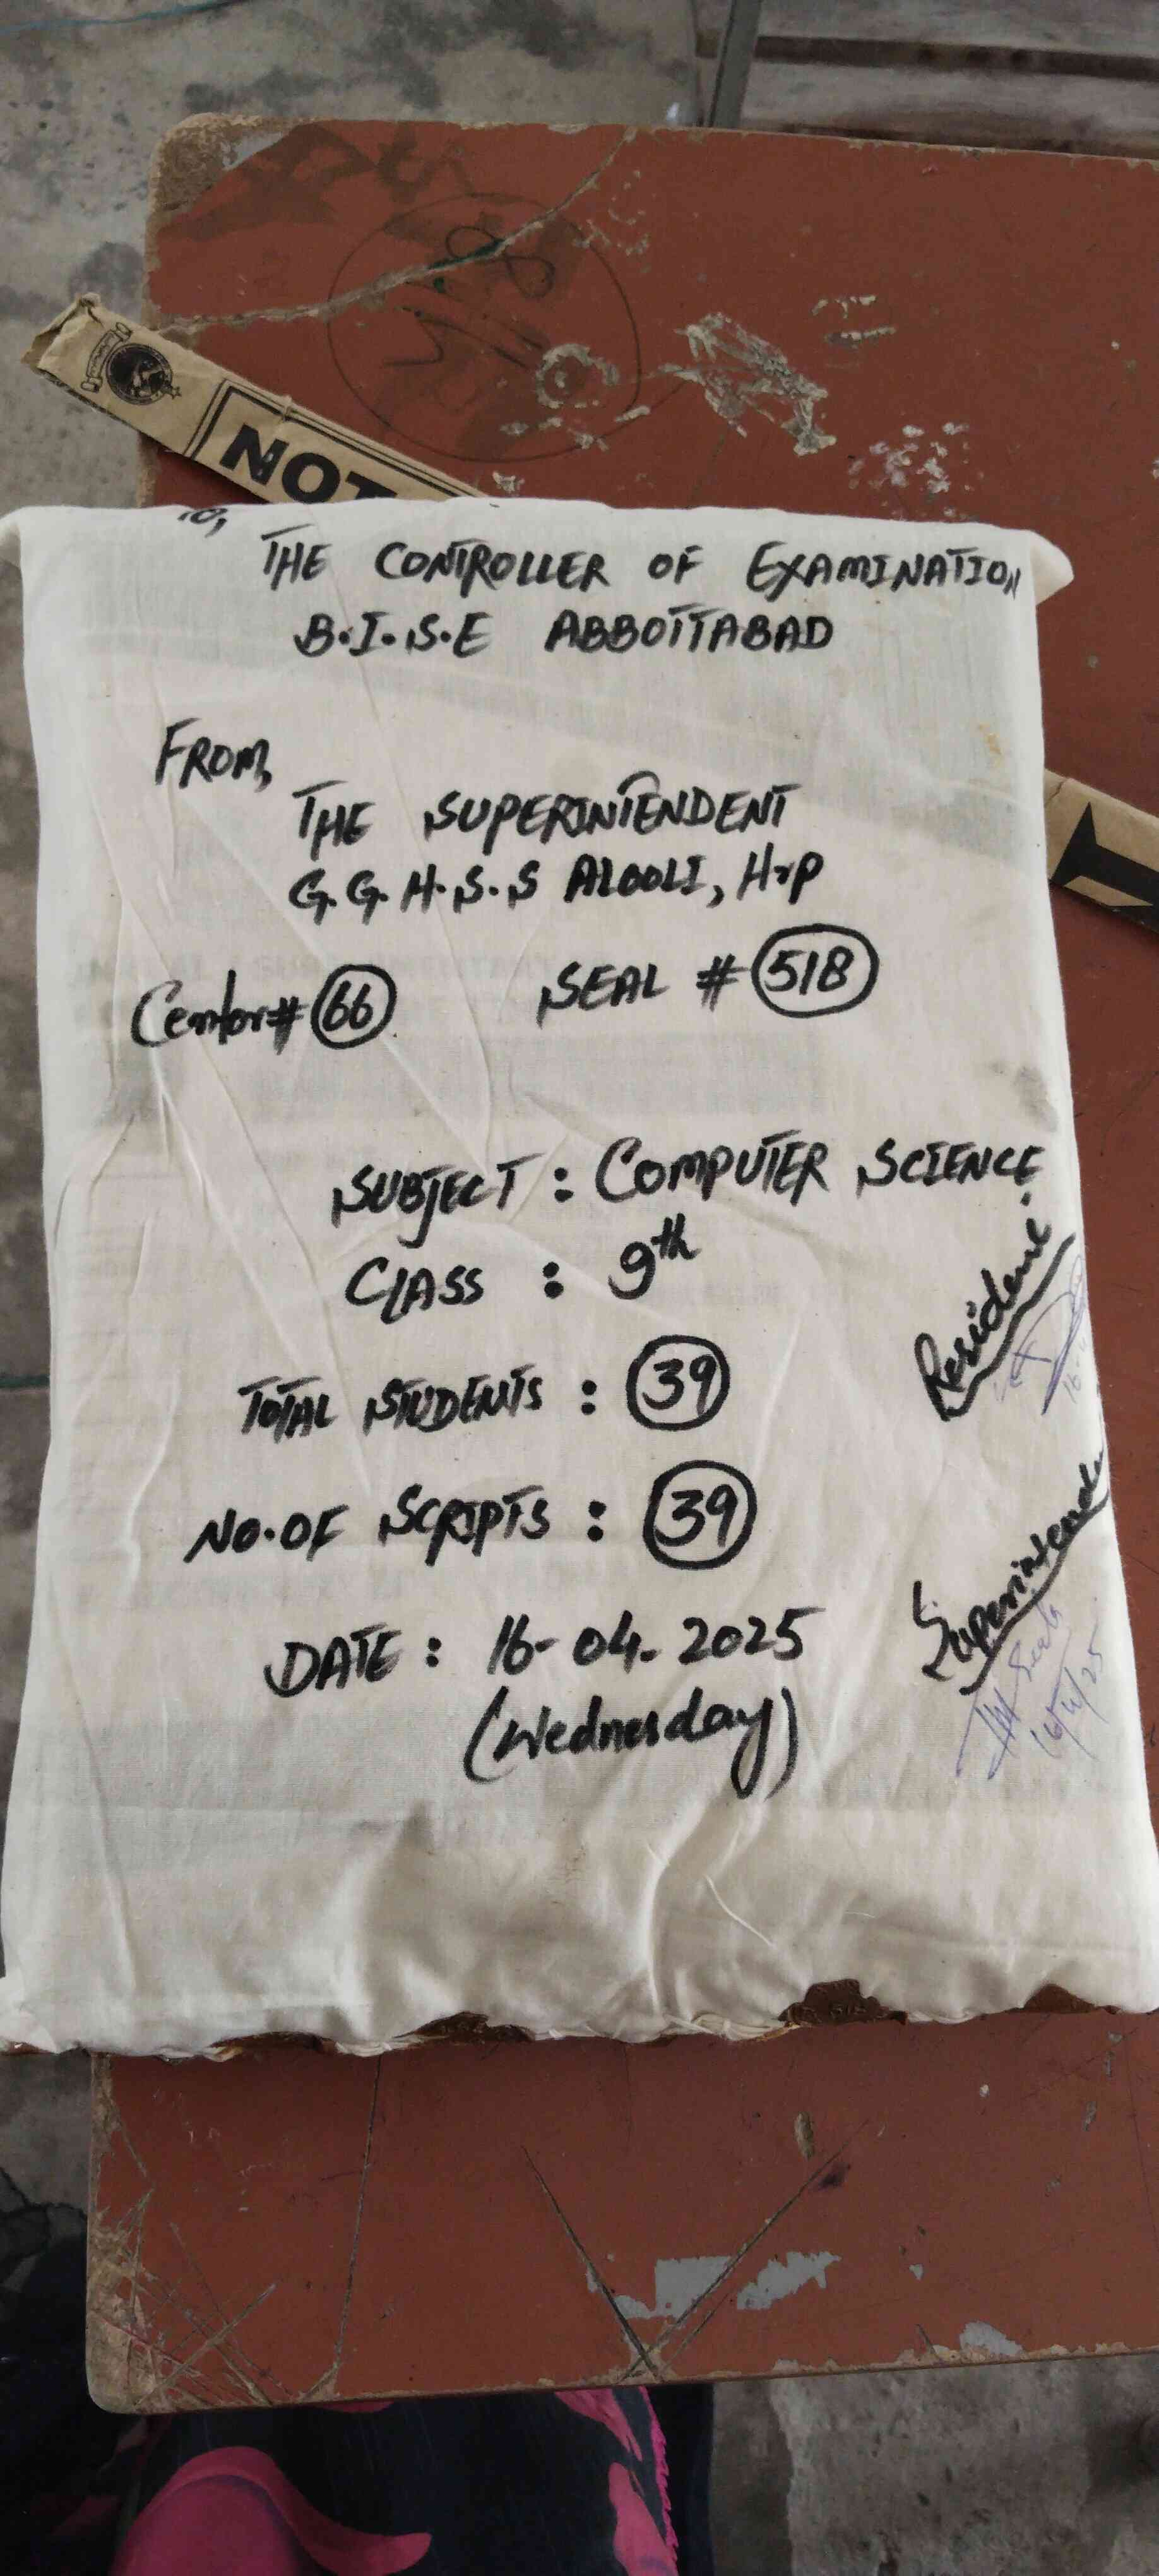 To,
THE CONTROLLER OF EXAMINATION
B.I.S.E ABBOTTABAD
FROM,
THE SUPERINTENDENT
G.G.H.S.S ALOOLI, Hrp
Center# 66 SEAL # 518
SUBJECT : COMPUTER SCIENCE
CLASS : 9th
TOTAL STUDENTS : 39
NO.OF SCRIPTS : 39
DATE : 16-04.2025
(Wednesday)
Resident
Superintendent
16/4/25
NOT